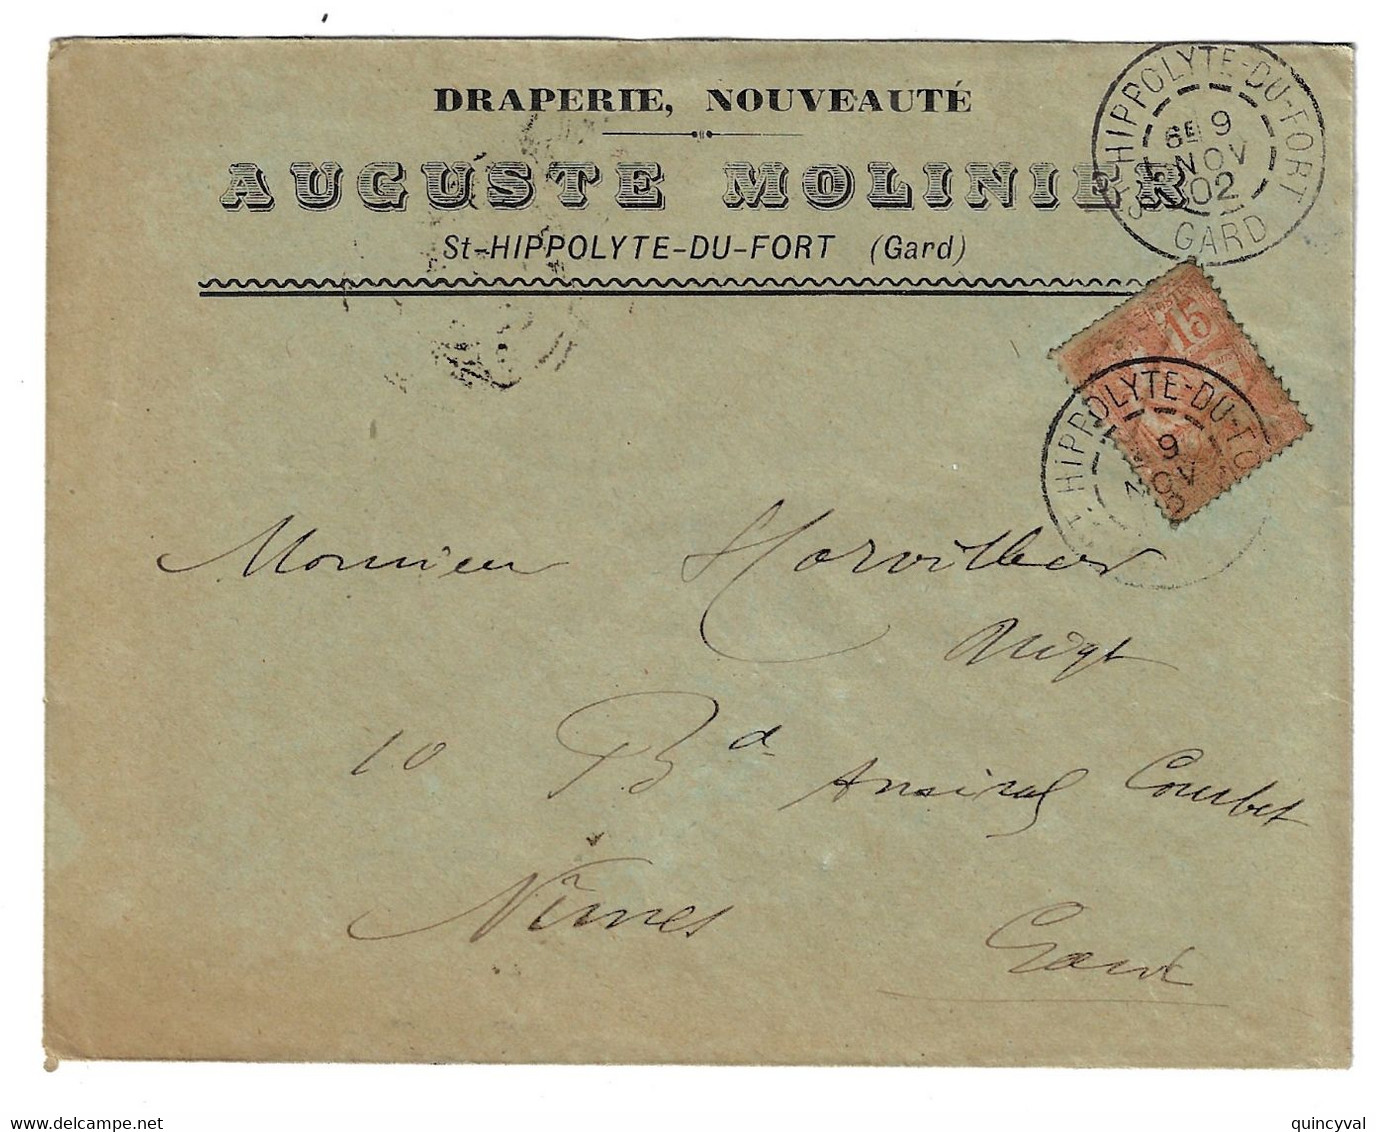 DRAPERIE, NOUVEAUTÉ
AUGUSTE MOLINIER
St-HIPPOLYTE-DU-FORT (Gard)
ST HIPPOLYTE-DU-FORT
6E 9
NOV
02
GARD
15
ST HIPPOLYTE-DU-FO
9
NOV
Monsieur Horvilleur
Négt
10 Bd Amiral Courbet
Nîmes
Gard
www.delcampe.net
quincyval